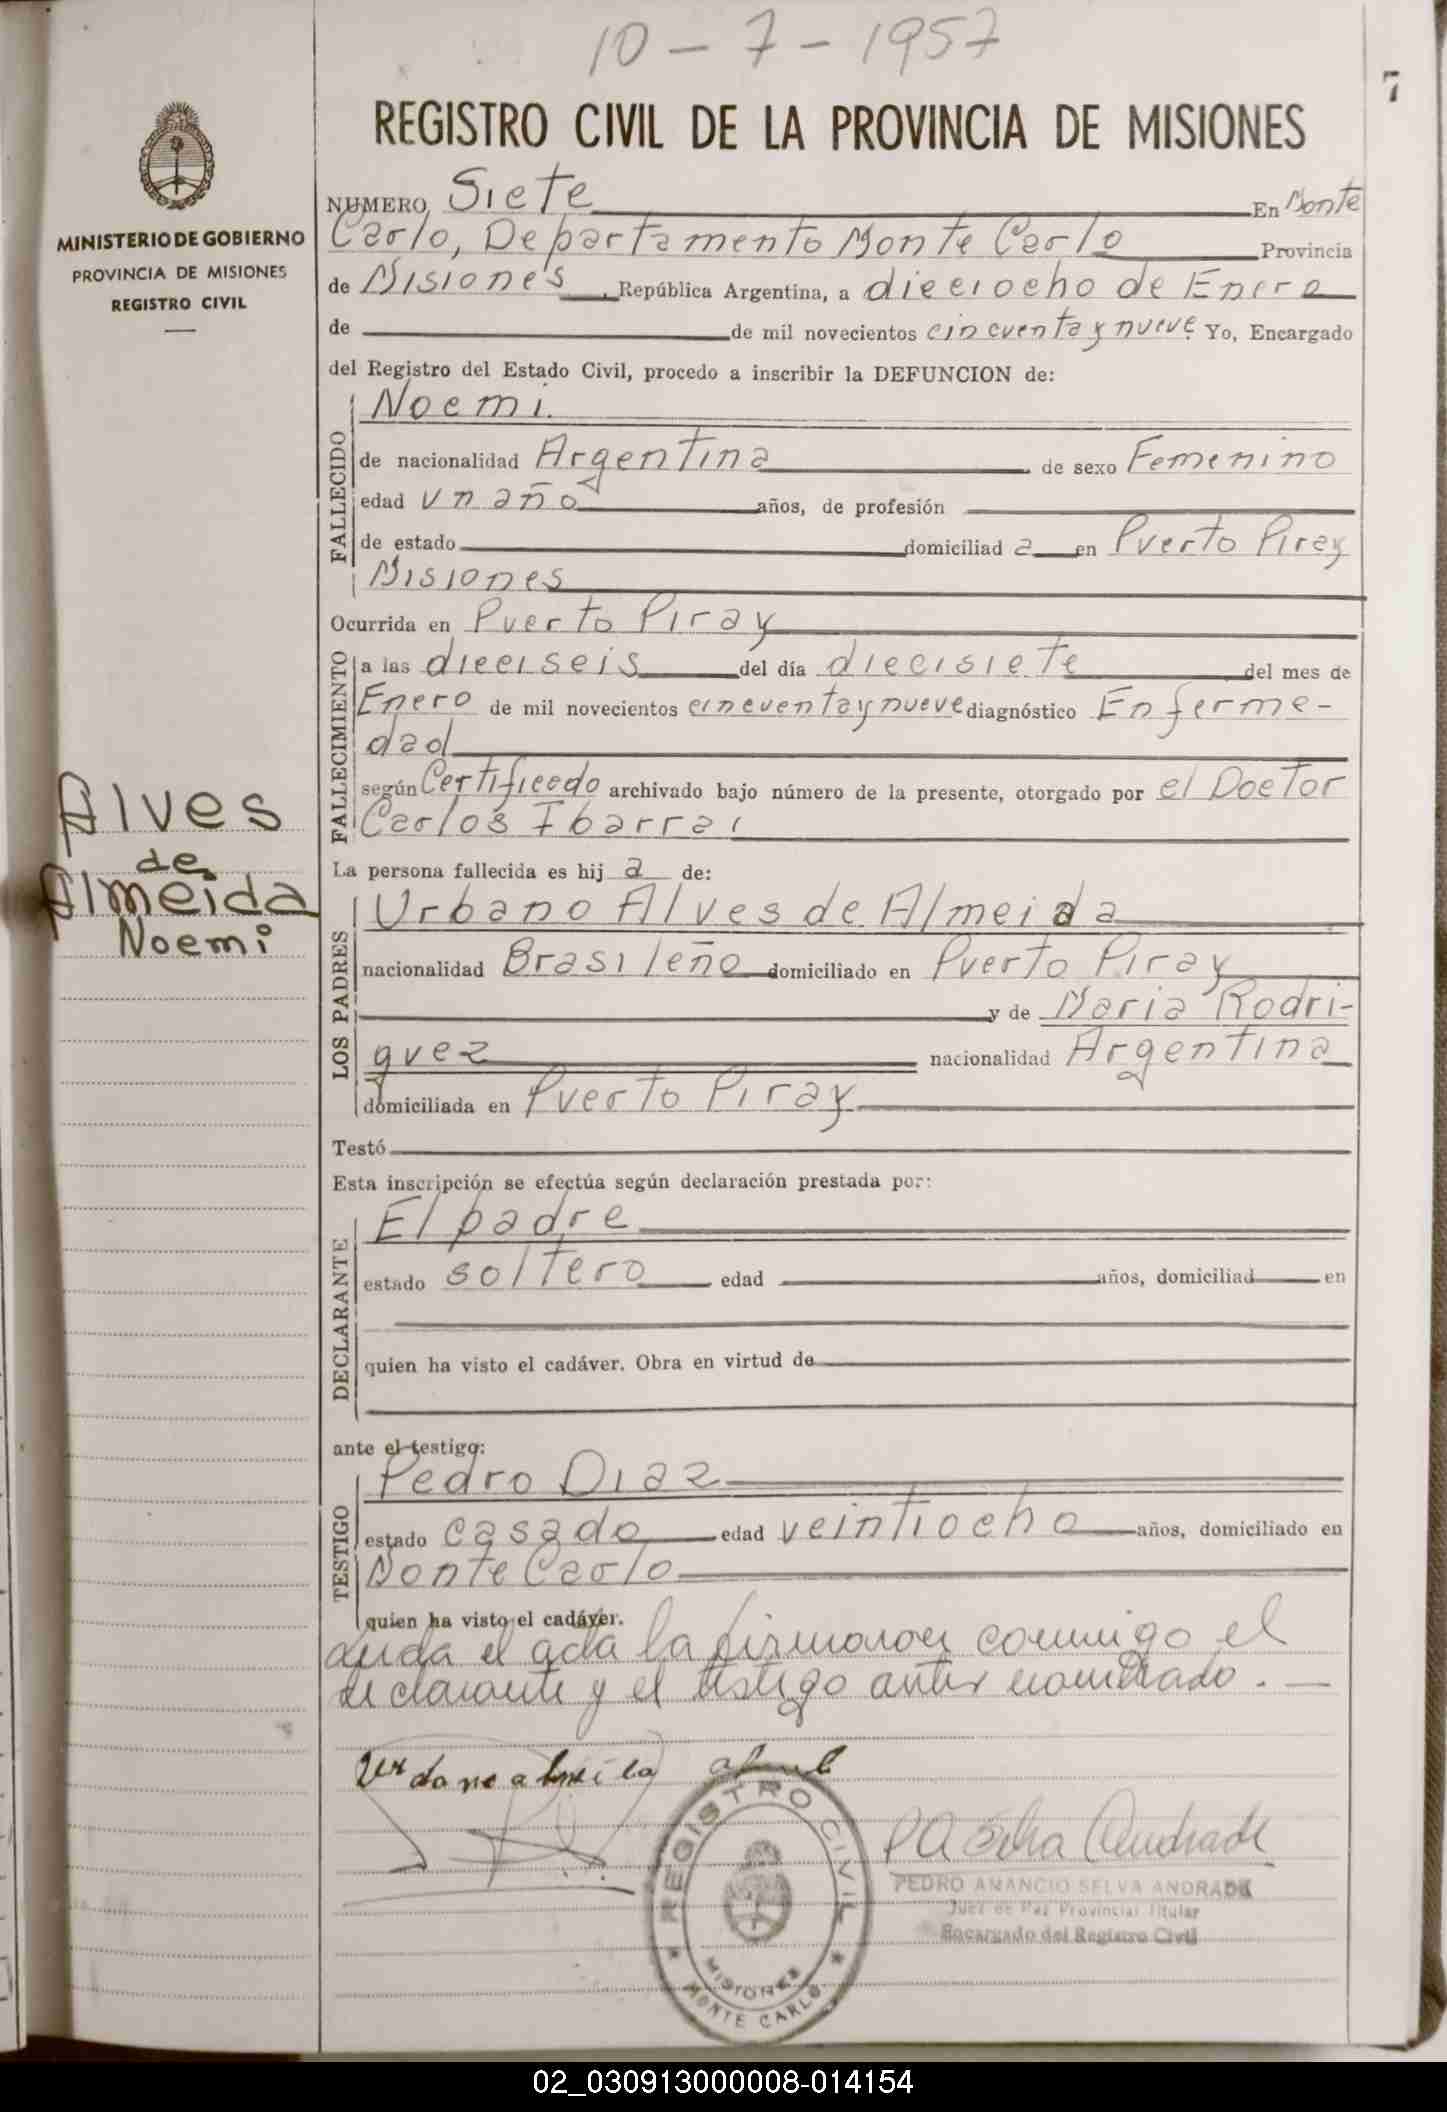 10 - 7 - 1957
7
REGISTRO CIVIL DE LA PROVINCIA DE MISIONES
MINISTERIO DE GOBIERNO
PROVINCIA DE MISIONES
REGISTRO CIVIL
NUMERO Siete En Monte
Carlo, Departamento Monte Carlo Provincia
de Misiones, República Argentina, a dieciocho de Enero
de de mil novecientos cincuenta y nueve Yo, Encargado
del Registro del Estado Civil, procedo a inscribir la DEFUNCION de:
FALLECIDO
Noemi.
de nacionalidad Argentina de sexo Femenino
edad un año años, de profesión
de estado domiciliad a en Puerto Piray
Misiones
Ocurrida en Puerto Piray
FALLECIMIENTO
a las dieciseis del día diecisiete del mes de
Enero de mil novecientos cincuenta y nueve diagnóstico Enferme-
dad
según Certificado archivado bajo número de la presente, otorgado por el Doctor
Carlos Ibarra
Alves
de
Almeida
Noemi
La persona fallecida es hij a de:
LOS PADRES
Urbano Alves de Almeida
nacionalidad Brasileño domiciliado en Puerto Piray
y de Maria Rodri-
guez nacionalidad Argentina
domiciliada en Puerto Piray
Testó
Esta inscripción se efectúa según declaración prestada por:
DECLARANTE
El padre
estado soltero edad años, domiciliad en
quien ha visto el cadáver. Obra en virtud de
ante el testigo:
TESTIGO
Pedro Diaz
estado casado edad veintiocho años, domiciliado en
Monte Carlo
quien ha visto el cadáver.
Leida el acta la firmaron conmigo el
declarante y el testigo antes nombrado. —
PA Selva Andrade
PEDRO AMANCIO SELVA ANDRADE
Juez de Paz Provincial Titular
Encargado del Registro Civil
REGISTRO CIVIL
MISIONES
MONTE CARLO
02_030913000008-014154